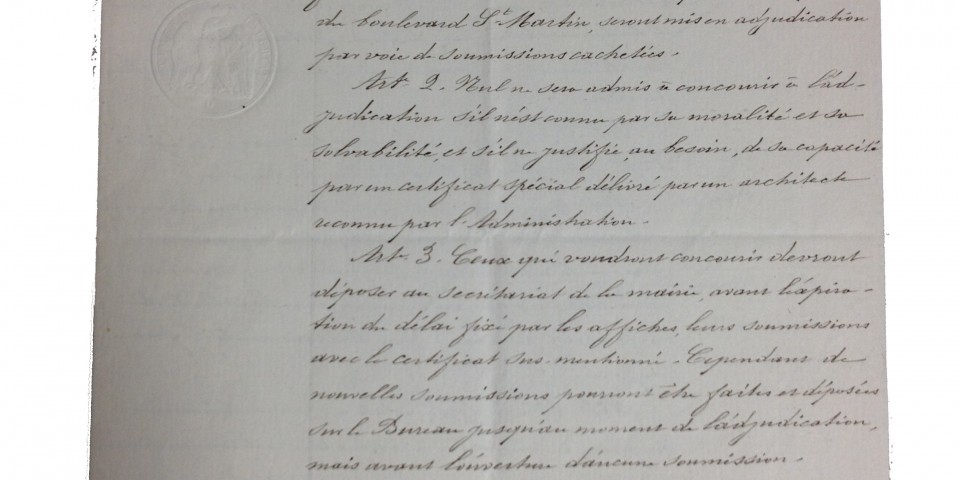 du boulevard St. Martin, seront mis en adjudication
par voie de soumissions cachetées.
Art. 2. Nul ne sera admis à concourir à l'ad-
judication s'il n'est connu par sa moralité et sa
solvabilité, et s'il ne justifie, au besoin, de sa capacité
par un certificat spécial délivré par un architecte
reconnu par l'Administration.
Art. 3. Ceux qui voudront concourir devront
déposer au secrétariat de la mairie, avant l'expira-
tion du délai fixé par les affiches, leurs soumissions
avec le certificat sus-mentionné. Cependant de
nouvelles soumissions pourront être faites et déposées
sur le Bureau jusqu'au moment de l'adjudication,
mais avant l'ouverture d'aucune soumission.